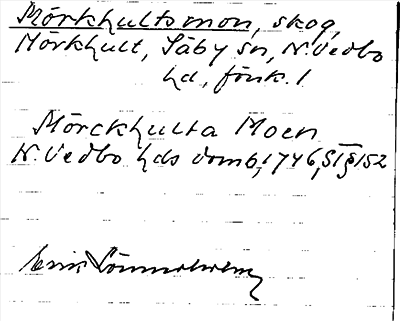 Mörkhultsmon, skog,
Mörkhult, Säby sn, N. Vedbo
hd, Jönk. l
Mörckhulta Moen
N. Vedbo hds domb, 1746, § 152
Erik Lönnholm